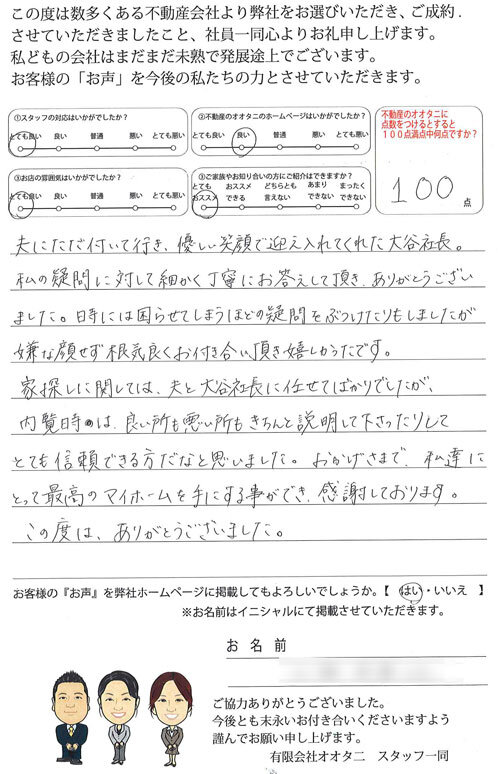 この度は数多くある不動産会社より弊社をお選びいただき、ご成約.
させていただきましたこと、社員一同心よりお礼申し上げます。
私どもの会社はまだまだ未熟で発展途上でございます。
お客様の「お声」を今後の私たちの力とさせていただきます。
①スタッフの対応はいかがでしたか?
とても良い 良い 普通 悪い とても悪い
②不動産のオオタニのホームページはいかがでしたか?
とても良い 良い 普通 悪い とても悪い
③お店の雰囲気はいかがでしたか?
とても良い 良い 普通 悪い とても悪い
③ご家族やお知り合いの方にご紹介はできますか?
とても オススメ どちらとも あまり まったく
オススメ できる 言えない できない できない
不動産のオオタニに
点数をつけるとすると
100点満点中何点ですか?
100
点
夫にただ付いて行き、優しい笑顔で迎え入れてくれた大谷社長。
私の疑問に対して細かく丁寧にお答えして頂き、ありがとうござい
ました。時には困らせてしまうほどの疑問をぶつけたりもしましたが
嫌な顔せず根気良くお付き合い頂き嬉しかったです。
家探しに関しては、夫と大谷社長に任せてばかりでしたが、
内覧時は、良い所も悪い所もきちんと説明して下さったりして
とても信頼できる方だなと思いました。おかげさまで、私達に
とって最高のマイホームを手にする事ができ、感謝しております。
この度は、ありがとうございました。
お客様の『お声』を弊社ホームページに掲載してもよろしいでしょうか。【 はい・いいえ 】
※お名前はイニシャルにて掲載させていただきます。
お名前
ご協力ありがとうございました。
今後とも末永いお付き合いくださいますよう
謹んでお願い申し上げます。
有限会社オオタニ スタッフ一同